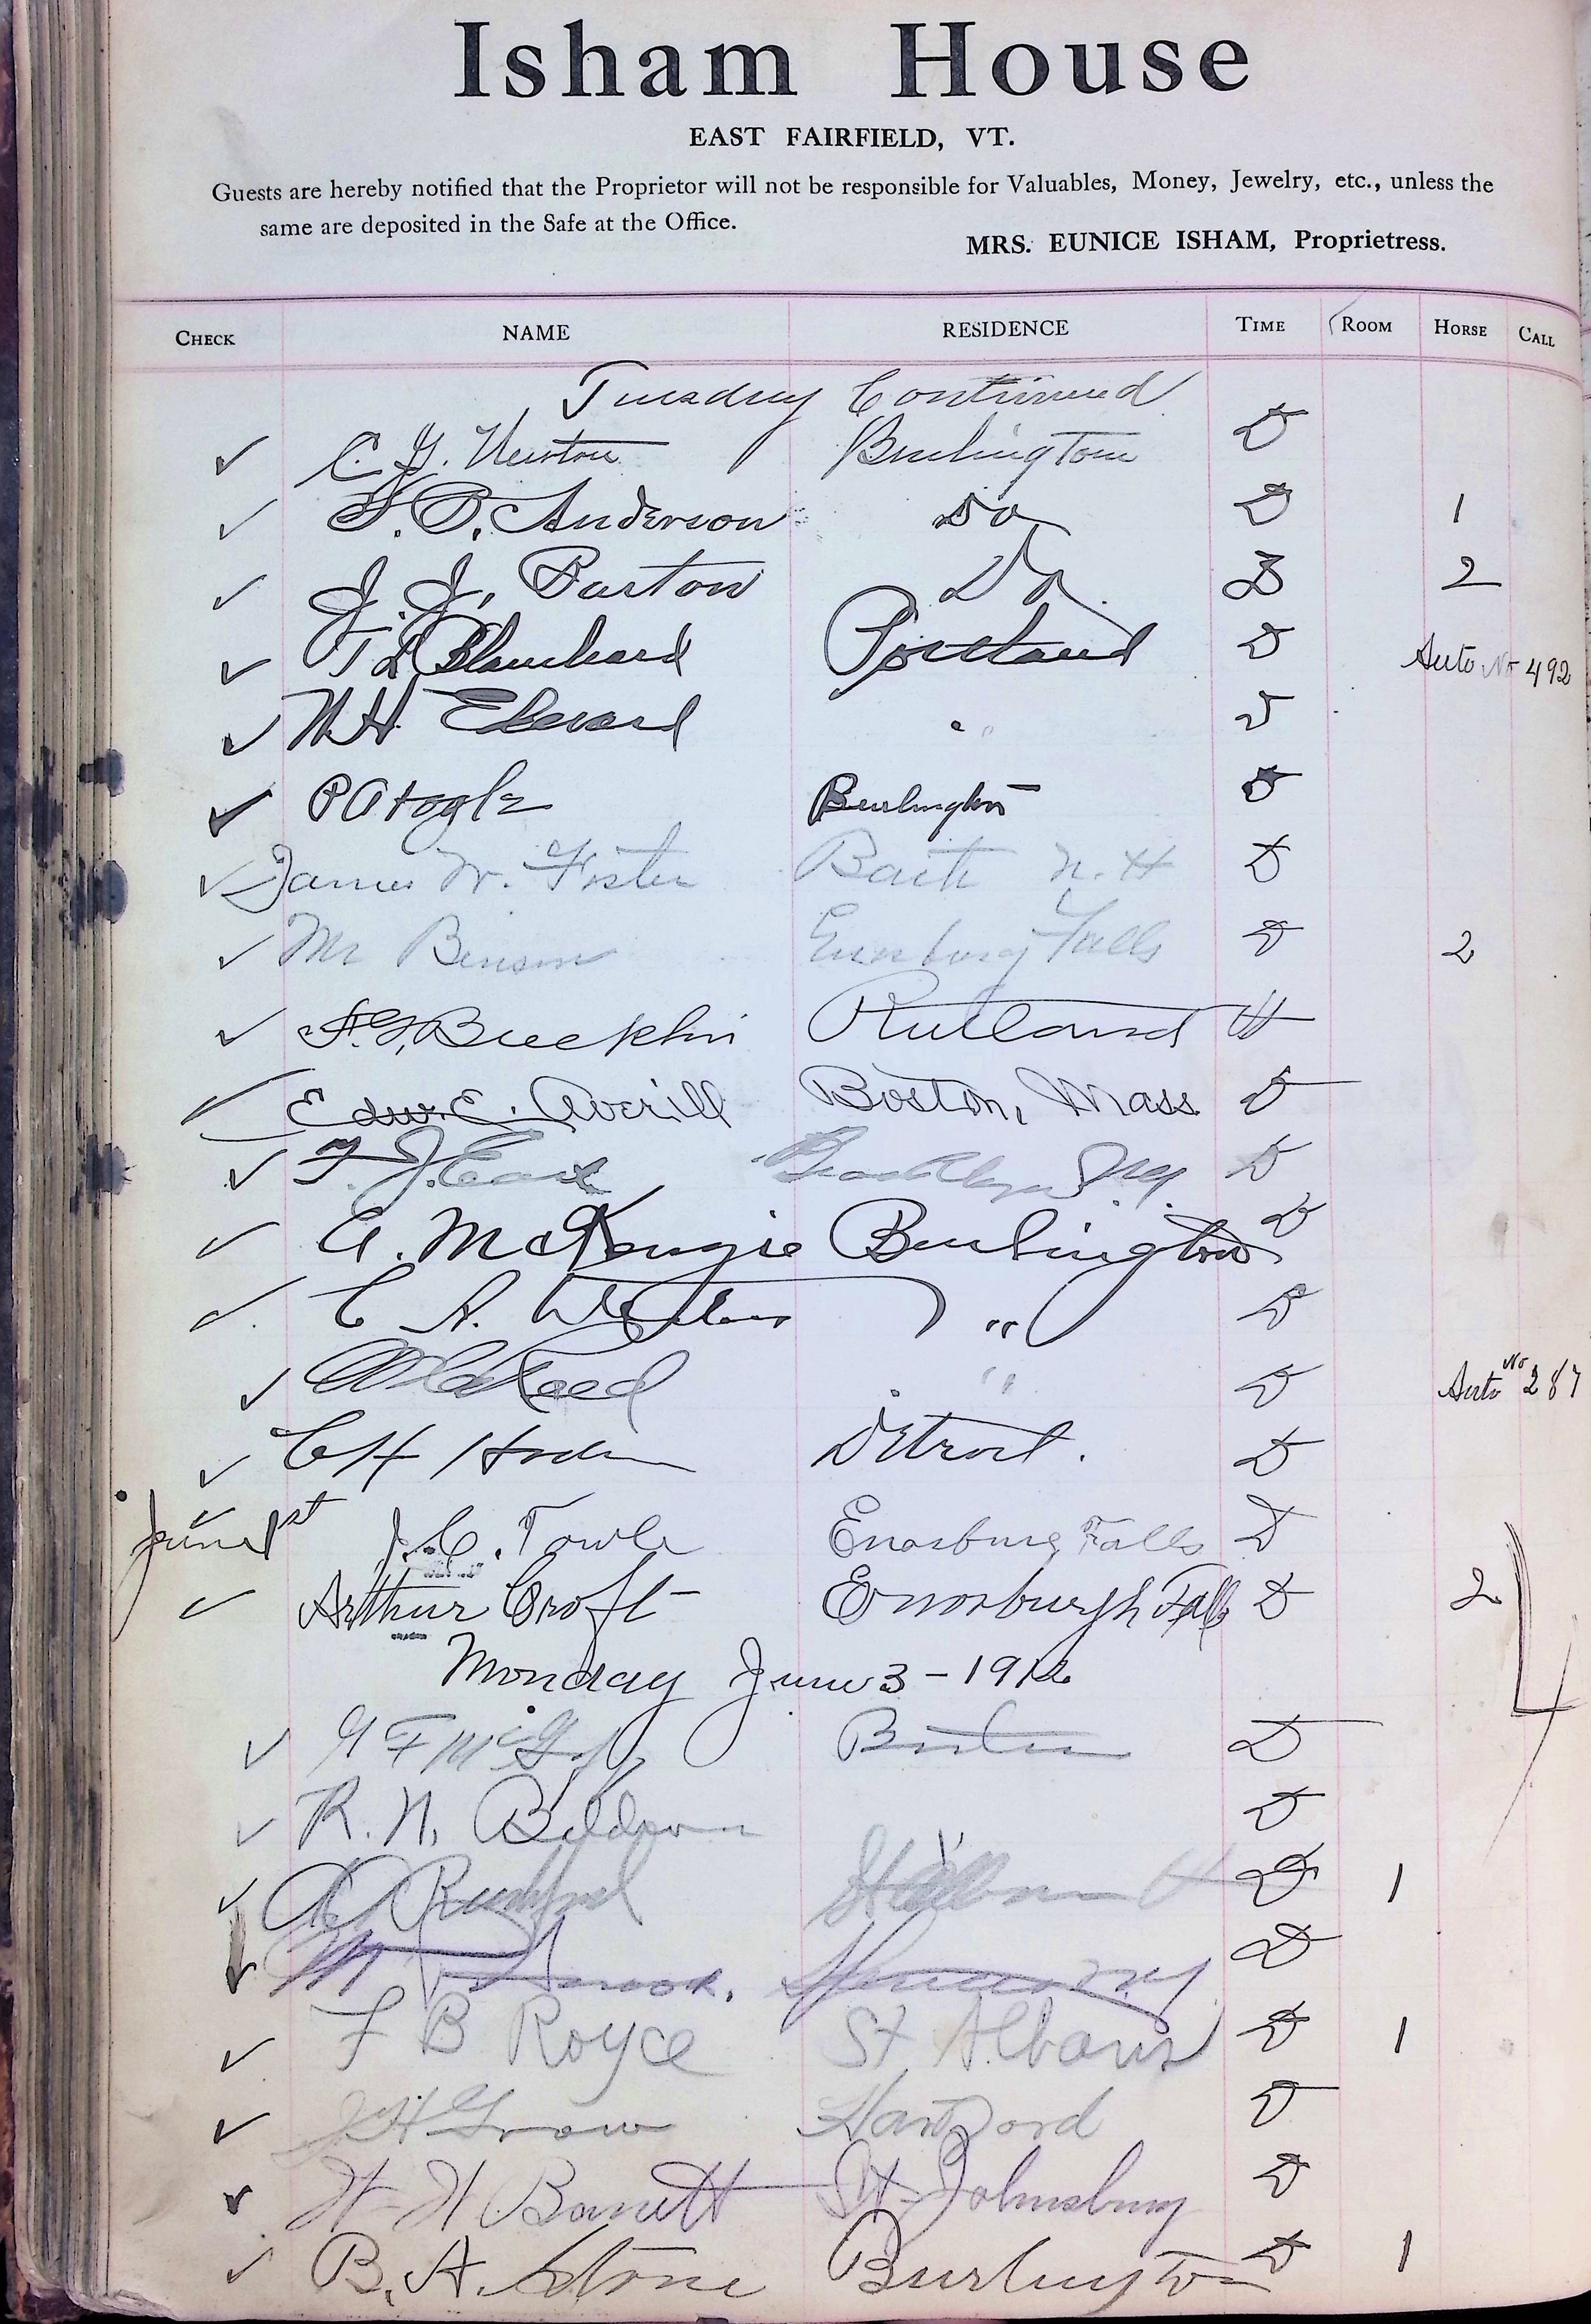 Isham House
EAST FAIRFIELD, VT.
Guests are hereby notified that the Proprietor will not be responsible for Valuables, Money, Jewelry, etc., unless the
same are deposited in the Safe at the Office.
MRS. EUNICE ISHAM, Proprietress.
CHECK NAME RESIDENCE TIME ROOM HORSE CALL
Tuesday Continued
✓ C. G. Newton Burlington D
✓ F. B. Anderson Do D 1
✓ J. J. Barton Do 2
✓ Blanchard Portland D Auto No 492
✓ " D
✓ Burlington D
✓ James W. Foster Bath N. H D
✓ Mr Benson Enosburg Falls D 2
✓ Rutland
✓ Edw. E. Averill Boston, Mass D
✓ Brooklyn N.Y. D
✓ A. McKenzie Burlington D
✓ C. A. " D
✓ " D Auto No 287
✓ C H Detroit. D
June 1st ✓ J. C. Towle Enosburg Falls D
✓ Arthur Croft Enosburgh Falls D 2
Monday June 3 - 1912
✓ D
✓ R. N. Baldwin D
✓ D 1
✓ D
✓ F B Royce St Albans D 1
✓ Grow Hartford D
✓ Barrett St Johnsbury D
✓ B. A. Stone Burlington D 1